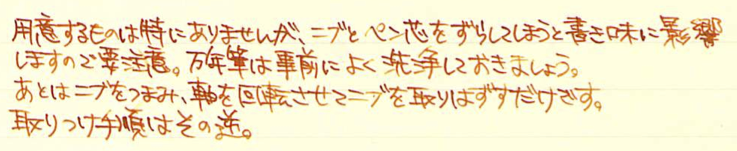 用意するものは特にありませんが、ニブとペン芯をずらしてしまうと書き味に影響
しますので要注意。万年筆は事前によく洗浄しておきましょう。
あとはニブをつまみ、軸を回転させてニブを取りはずすだけです。
取りつけ手順はその逆。